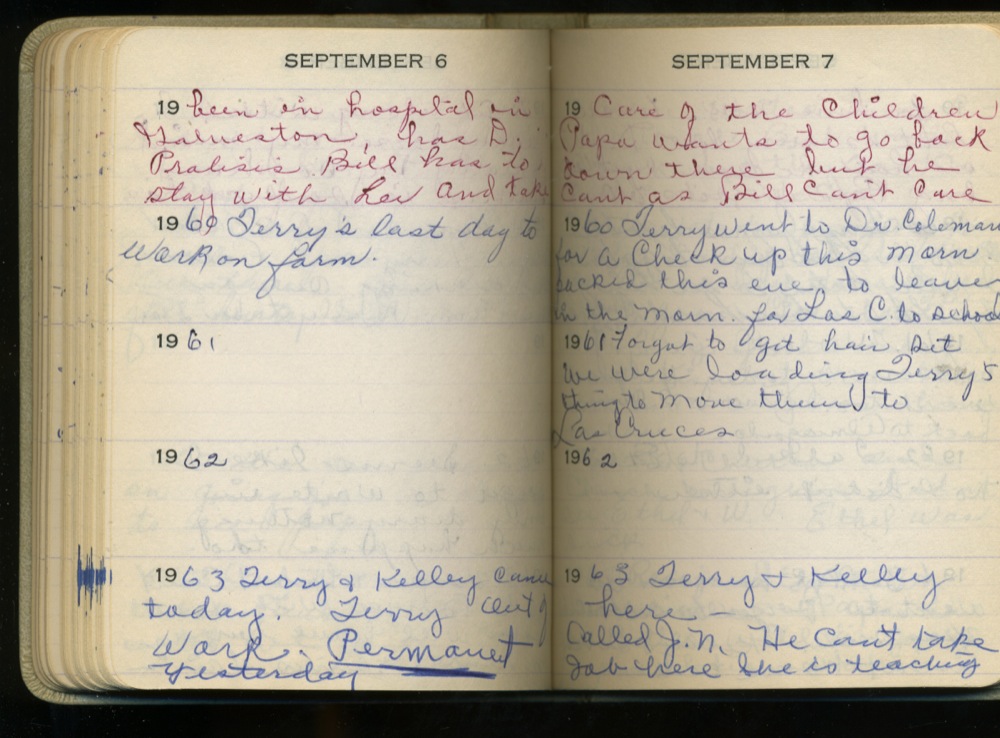 SEPTEMBER 6
19 been in hospital in
Galveston, has D.
Pralisis. Bill has to
stay with her and take
1960 Terry's last day to
work on farm.
1961
1962
1963 Terry & Kelley came
today. Terry out of
Work. Permanet
yesterday
SEPTEMBER 7
19 Care of the Children
Papa wants to go back
down there but he
Cant as Bill Cant Care
1960 Terry went to Dr. Coleman
for a Check up this morn.
packed this eve to leave
in the morn. for Las C. to school
1961 Forgot to get hair set
we were loading Terry's
things to move them to
Las Cruces
1962
1963 Terry & Kelley
here —
Called J.N. He can't take
Job here She is teaching